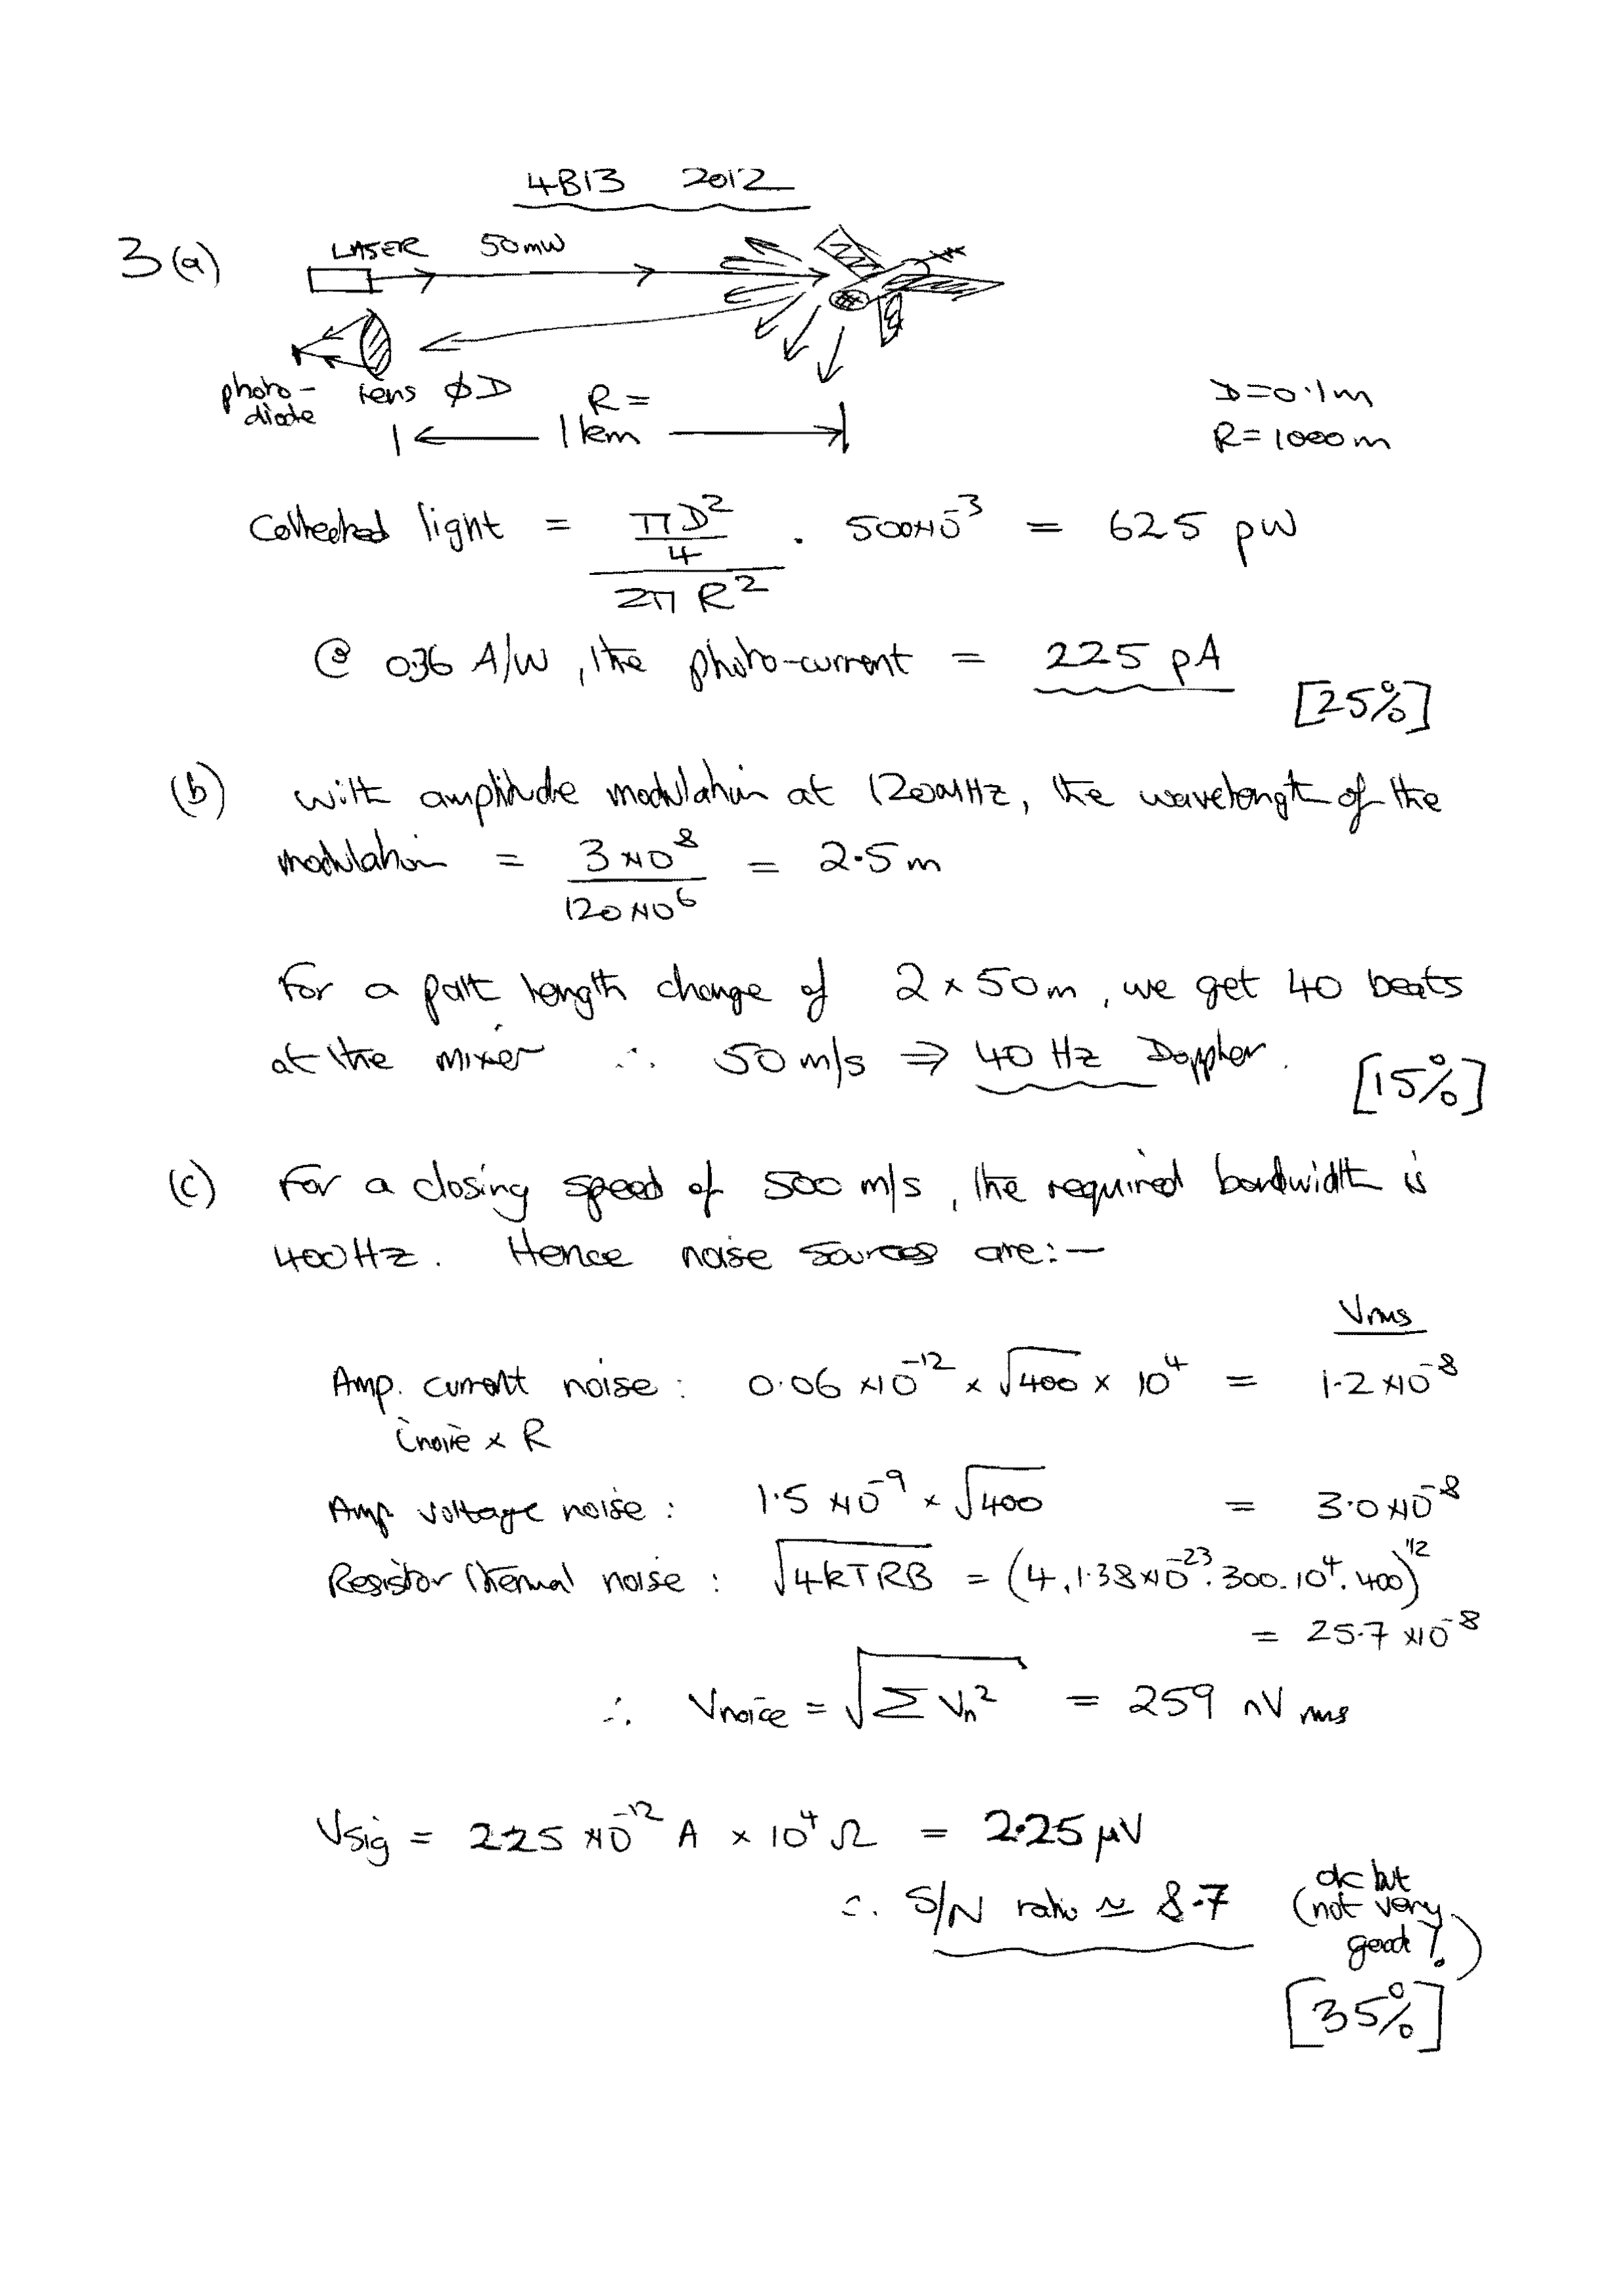 4B13 2012
3 (a) LASER 50mW
photo-diode lens ϕD R = 1km
D=0.1m
R=1000m
Collected light = (πD²/4)/(2πR²) . 500×10⁻³ = 625 pW
@ 0.36 A/W, the photo-current = 225 pA
[25%]
(b) With amplitude modulation at 120MHz, the wavelength of the
modulation = 3×10⁸/120×10⁶ = 2.5m
For a path length change of 2×50m, we get 40 beats
at the mixer ∴ 50m/s ⇒ 40 Hz Doppler.
[15%]
(c) For a closing speed of 500 m/s, the required bandwidth is
400Hz. Hence noise sources are:—
Vrms
Amp. current noise: 0.06×10⁻¹² × √400 × 10⁴ = 1.2×10⁻⁸
inoise × R
Amp. voltage noise: 1.5×10⁻⁹ × √400 = 3.0×10⁻⁸
Resistor thermal noise: √4kTRB = (4.1.38×10⁻²³.300.10⁴.400)^1/2
= 25.7×10⁻⁸
∴ Vnoise = √ΣVn² = 259 nV rms
Vsig = 225×10⁻¹² A × 10⁴ Ω = 2.25 μV
∴ S/N ratio ≃ 8.7 (ok but not very good!)
[35%]